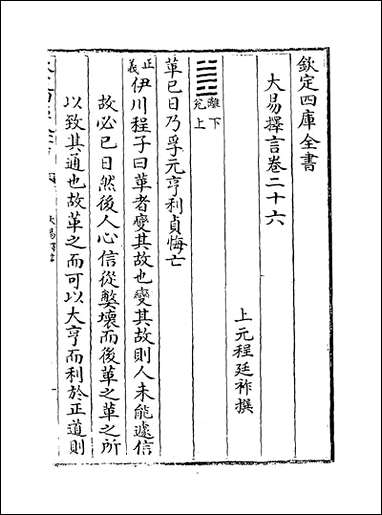 欽定四庫全書
大易擇言卷二十六
上元程廷祚撰
離下
兌上
革已日乃孚元亨利貞悔亡
正義
伊川程子曰革者變其故也變其故則人未能遽信
故必已日然後人心信從弊壞而後革之革之所
以致其通也故革之而可以大亨而利於正道則